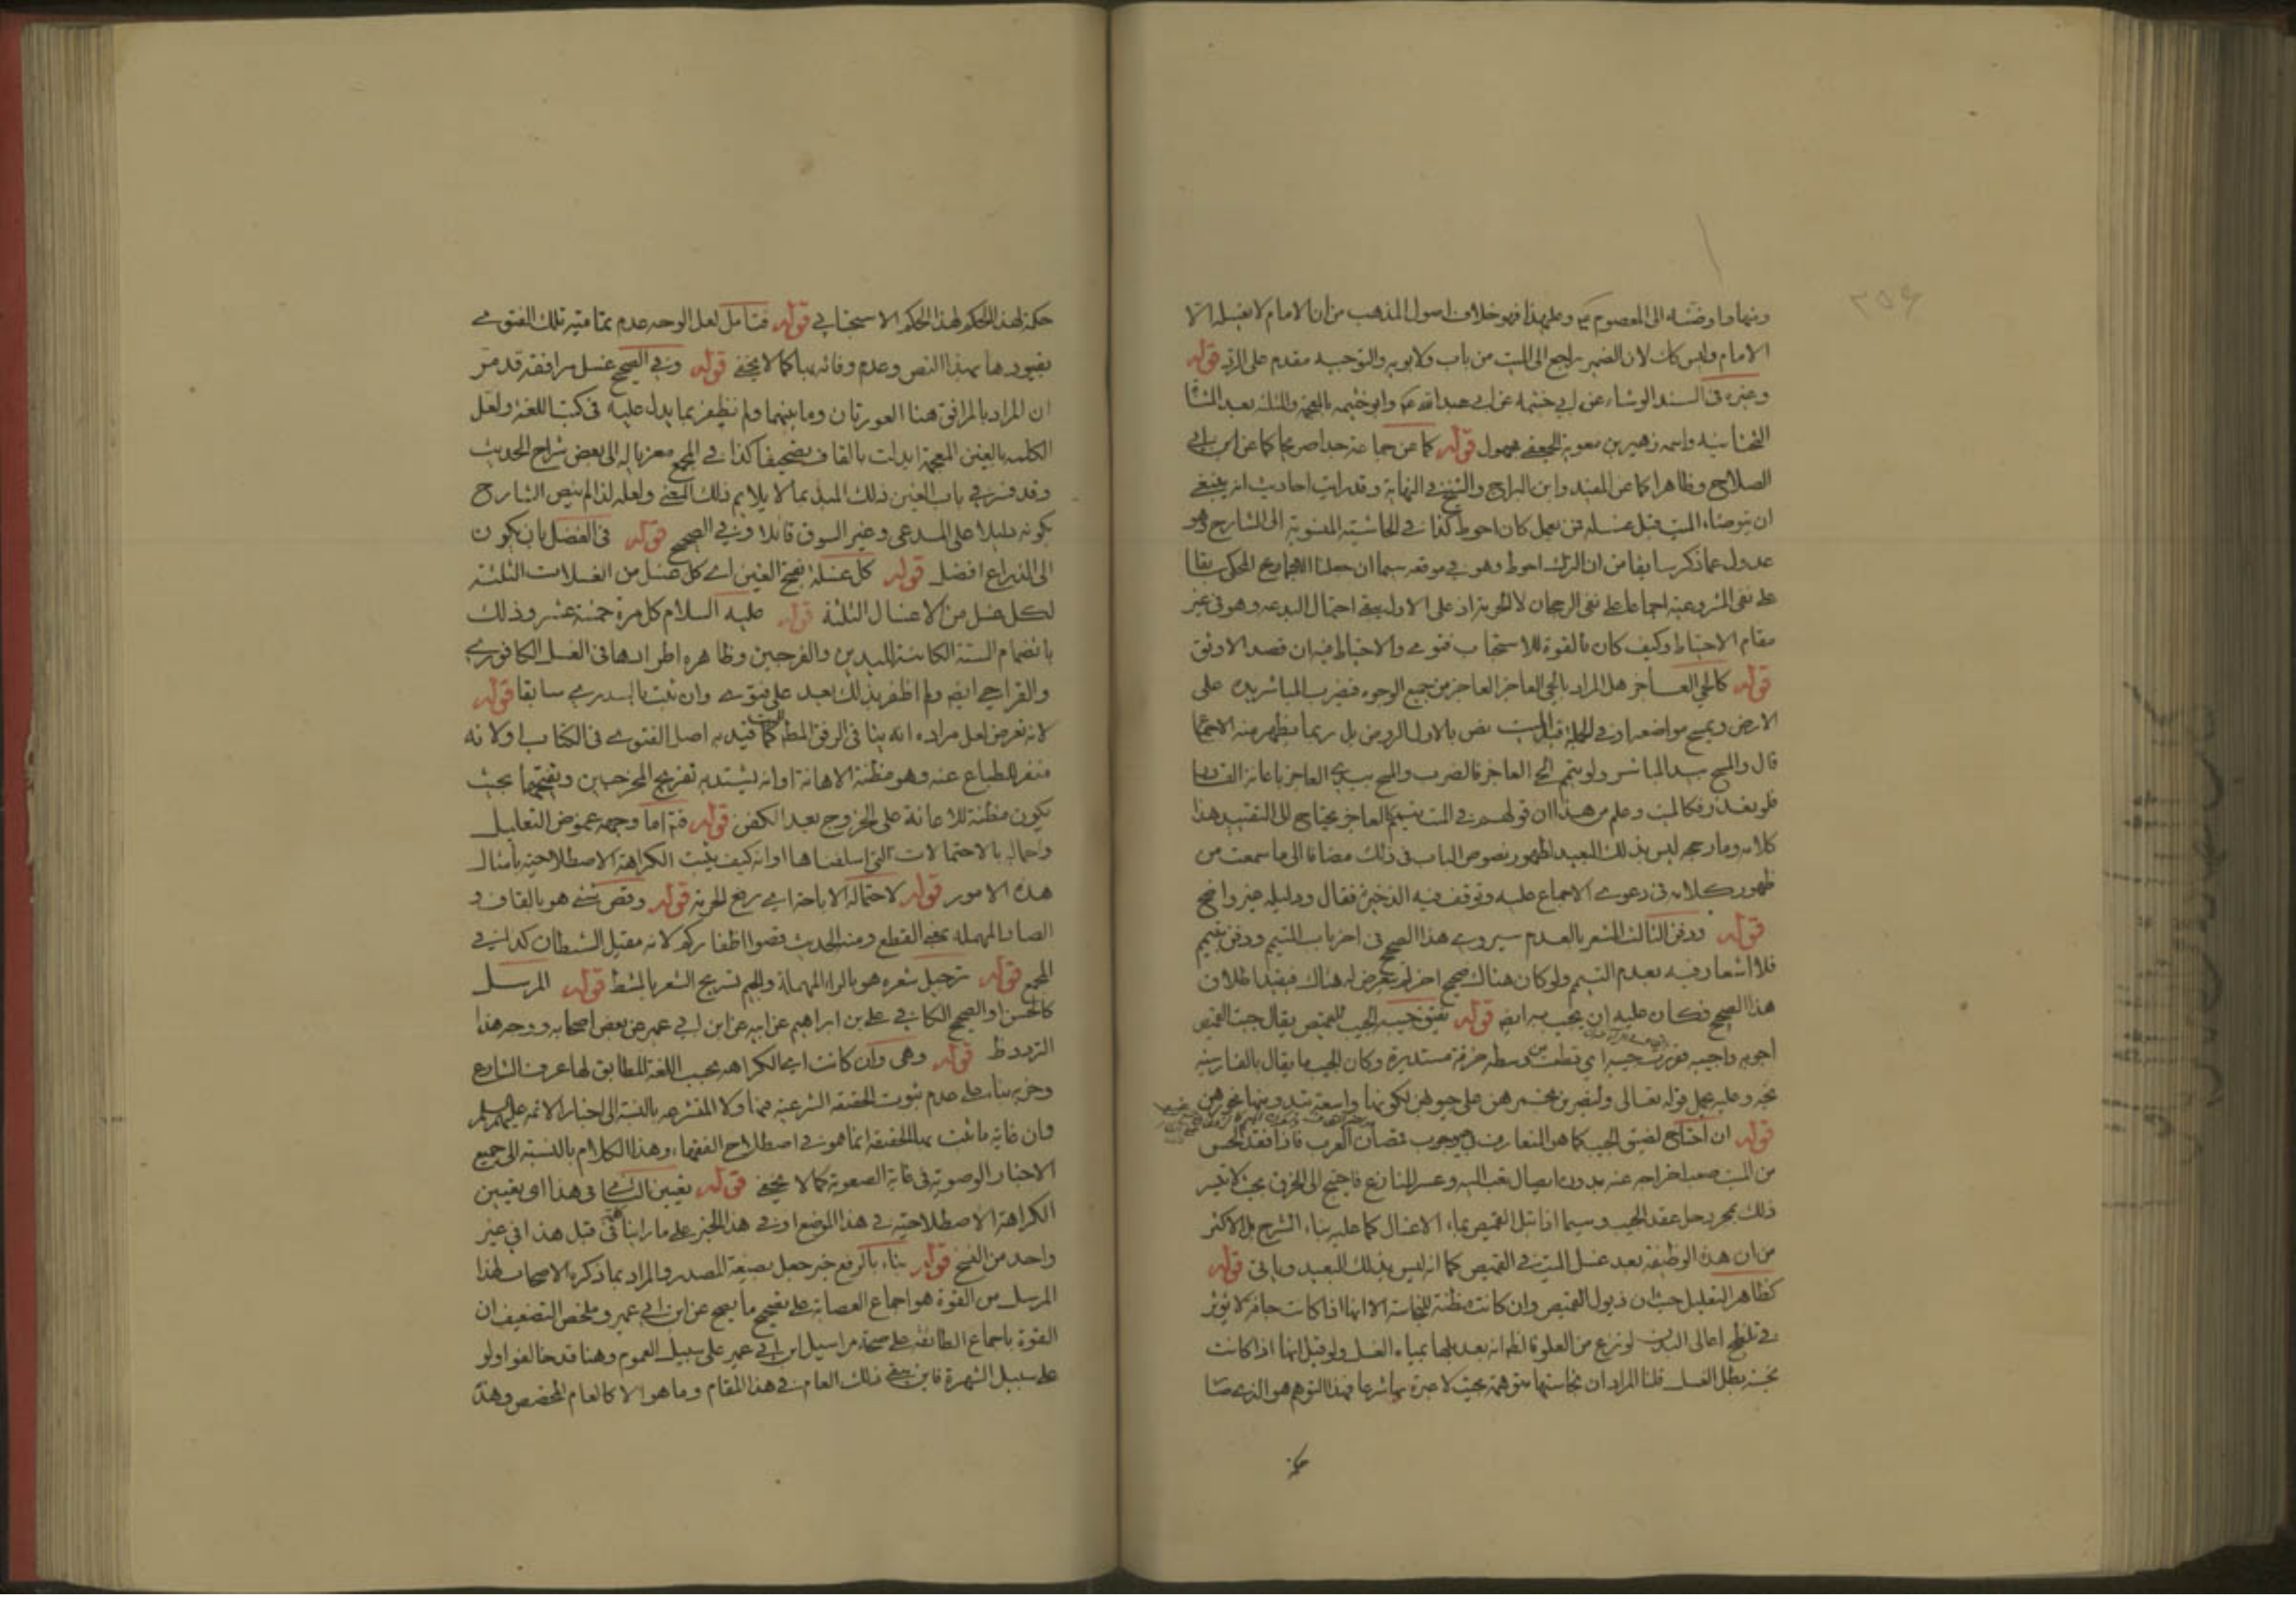 وعلى هذا فهو خلاف اصول المذهب من ان الامام لا يغسله الا
الامام وليس كذلك لان الضمير راجع الى الميت من باب ولابويه والتوجيه مقدم على الرد قوله
وغيره في السند الوشاء عن ابي خيثمة عن ابي عبد الله وابو خيثمة بالمعجمة والمثلثة بعد المثناة
التحتانية واسمه زهير بن معوية الجعفي مجهول قوله كما عن جماعة
الصلاح وظاهرا كما عن المفيد وابن البراج والشيخ في النهاية وقد رويت احاديث انه ينبغي
ان يتوضاء الميت قبل غسله فمن عمل كان احوط كذا في الحاشية المنسوبة الى الشارح وهو
عدول عما ذكر سابقا من ان الترك احوط وهو في موقعه سيما ان حملنا الاجماع المحكي سابقا
على نفي المشروعية اجماعا على نفي الرجحان لا الحرمة اذ على الاول يبقى احتمال البدعة وهو في غير
مقام الاحتياط وكيف كان فالقوة للاستحباب فتوى والاحتياط فيه ان قصد الاوفق
قوله كالحي العاجز هل المراد بالحي العاجز العاجز من جميع الوجوه فيضرب المباشر يده على
الارض ويمسح مواضعه او في الجملة قبل الميت نص بالاول الروض بل ربما يظهر منه الاجماع
قال والمسح بيد المباشر ولو يتمم الحي العاجز فالضرب والمسح بيدي العاجز باعانة القادر
فلو تعذر فكالميت وعلم من هذا ان قولهم في الميت ييمم كالعاجز يحتاج الى التقييد هذا
كلامه وما رجحه ليس بذلك البعيد لظهور نصوص الباب في ذلك مضافا الى ما سمعت من
ظهور كلامه في دعوى الاجماع عليه وتوقف فيه الذخيرة فقال ودليله غير واضح
قوله ودفن الثالث المشعر بالعدم سيروى هذا الصحيح في اخر باب التيمم ودفن بتيمم
فلا اشعار فيه بعدم التيمم ولو كان هناك صحيح اخر لم يتعرض له هناك فيقيد اطلاق
هذا الصحيح فكان عليه ان يجيب به ايضا قوله بفتق جيبه الجيب للقميص يقال جبت القميص
اجوبه واجيبه قورت جيبه اي قطعت من وسطه خرقة مستديرة وكان الجيب ما يقال بالفارسية
يخه وعليه يحمل قوله تعالى وليضربن بخمرهن على جيوبهن لكونها واسعة تبدو منها نحورهن
قوله ان احتاج لضيق الجيب كما هو المتعارف في جيوب قمصان العرب فاذا فقد الحس
من الميت صعب اخراجه عنه بدون ايصال تعب اليه وعسر المنازع فاحتيج الى الخرق بحيث لا يتيسر
ذلك بمجرد حل عقد الجيب وسيما اذا تبل القميص بماء الاغسال كما عليه بناء الشرح بل الاكثر
من ان هذه الوظيفة بعد غسل الميت في القميص كما انه ليس بذلك البعيد وياتي قوله
كظاهر التعليل حيث ان ذيول القميص وان كانت مظنة للنجاسة الا انها اذا كانت جافة لا يؤثر
في تلطخ اعالي البدن لو نزع من العلو فالظاهر انه بعد بلها بمياه الغسل ولو قيل انها اذا كانت
نجسة بطل الغسل قلنا المراد ان نجاستها متوهمة بحيث لا عبرة بها شرعا فهذا التوهم هو الذي صار
حكمة لهذا الحكم الاستحبابي قوله فتامل لعل الوجه عدم تمامية تلك الفتوى
بقيودها بهذا النص وعدم وفائه بها كما لا يخفى قوله وفي الصحيح غسل مرافقه قد مر
ان المراد بالمرافق هنا العورتان وما بينهما ولم نظفر بما يدل عليه في كتب اللغة ولعل
الكلمة بالغين المعجمة ابدلت بالقاف تصحيفا كذا في المجمع معزيا له الى بعض شراح الحديث
وقد فسر في باب الغين ذلك المبدل بما لا يلايم ذلك المعنى ولعله لذا لم ينص الشارح
بكونه دليلا على المدعى وغير السوق قائلا وفي الصحيح قوله في الفضل بان يكون
الى الذراع افضل قوله كل غسلة بفتح الغين اي كل غسل من الغسلات الثلثة
لكل غسل من الاغسال الثلثة قوله عليه السلام كل مرة خمسة عشر وذلك
بانضمام الستة الكائنة لليدين والفرجين وظاهره اطرادها في الغسل الكافوري
والقراحي ايضا ولم اظفر بذلك بعد على فتوى وان ثبت بالسدري سابقا قوله
لانه تعرض لعل مراده انه ينافي الرفق المطلوب كما قيد به اصل الفتوى في الكتاب اولا انه
منفر للطباع عنه وهو مظنة الاهانة او انه يشتد به تفريج المخرجين وتفتحهما بحيث
يكون مظنة للاعانة على الخروج بعد الكفن قوله فتم اما وجهه غموض التعليل
واجماله بالاحتمالات التي اسلفناها او انه كيف يثبت الكراهة الاصطلاحية بامثال
هذه الامور قوله لاحتماله الاباحة اي رفع الحرمة قوله وقص شيء هو بالقاف و
الصاد المهملة بمعنى القطع ومنه الحديث قصوا اظفاركم لانه مقيل الشيطان كذا في
المجمع قوله ترجيل شعره هو بالراء المهملة والجيم تسريح الشعر بالمشط قوله المرسل
كالحسن او الصحيح الكافي علي بن ابراهيم عن ابيه عن ابن ابي عمير عن بعض اصحابه ووجه هذا
الترديد ظ قوله وهي وان كانت اي الكراهة بحسب اللغة المطابق لها عرف الشارع
وخبره بناء على عدم ثبوت الحقيقة الشرعية فيها ولا المتشرعة بالنسبة الى اخبار الائمة عليهم السلام
فان غاية ما ثبت بها الحقيقة انما هو في اصطلاح الفقهاء وهذا الكلام بالنسبة الى جميع
الاخبار الوصوية في غاية الصعوبة كما لا يخفى قوله تعيين الثاني في هذا اي تعيين
الكراهة الاصطلاحية في هذا الموضع او في هذا الخبر على ما راينا في قبل هذا في غير
واحد من النسخ قوله بناء بالرفع خبر جعل بصيغة المصدر والمراد بما ذكره الاصحاب لهذا
المرسل من القوة هو اجماع العصابة على تصحيح ما يصح عن ابن ابي عمير وملخص التضعيف ان
القوة باجماع الطائفة على صحة مراسيل ابن ابي عمير على سبيل العموم وهنا قد خالفوا ولو
على سبيل الشهرة فاين يبقى ذلك العام في هذا المقام وما هو الا كالعام المخصص وهذا